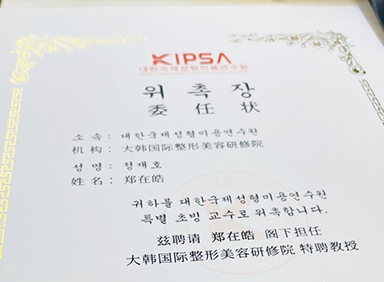 KIPSA
대한국제성형미용연수원
위 촉 장
委 任 状
소 속 : 대한국제성형미용연수원
机 构 : 大韩国际整形美容研修院
성 명 : 정재호
姓 名 : 郑在皓
귀하를 대한국제성형미용연수원
특별 초빙 교수로 위촉합니다.
兹聘请 郑在皓 阁下担任
大韩国际整形美容研修院 特聘教授